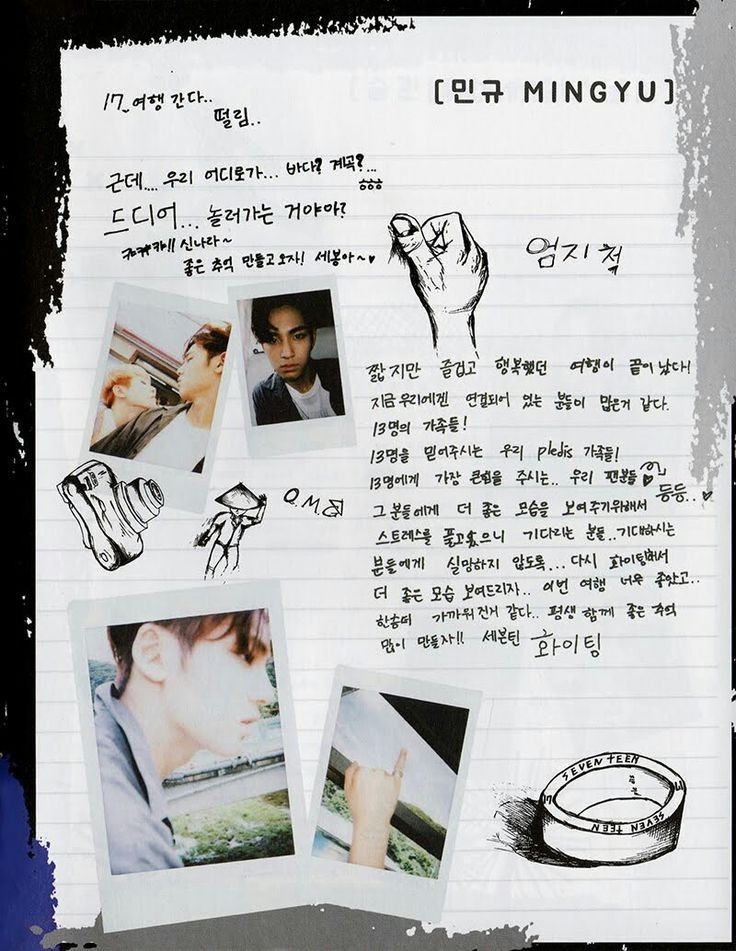 [민규 MINGYU]
17_여행 간다..
떨림..
근데.... 우리 어디로가... 바다? 계곡?...
ㅎㅎㅎ
드디어... 놀러가는 거야아?
캬캬캬!! 신나라~
좋은 추억 만들고오자! 세봉아~♥
엄지척
짧지만 즐겁고 행복했던 여행이 끝이 났다!
지금 우리에겐 연결되어 있는 분들이 많은거 같다.
13명의 가족들!
13명을 믿어주시는 우리 pledis 가족들!
13명에게 가장 큰힘을 주시는.. 우리 팬분들♥
등등..♥
그분들에게 더 좋은 모습을 보여주기위해서
스트레스를 풀고왔으니 기다리는 분들..기대하시는
분들에게 실망하지 않도록... 다시 화이팅해서
더 좋은 모습 보여드리자.. 이번 여행 너무 좋았고..
한층더 가까워진거 같다.. 평생 함께 좋은 추억
많이 만들자!! 세븐틴 화이팅
SEVEN TEEN
17
13
SEVEN TEEN